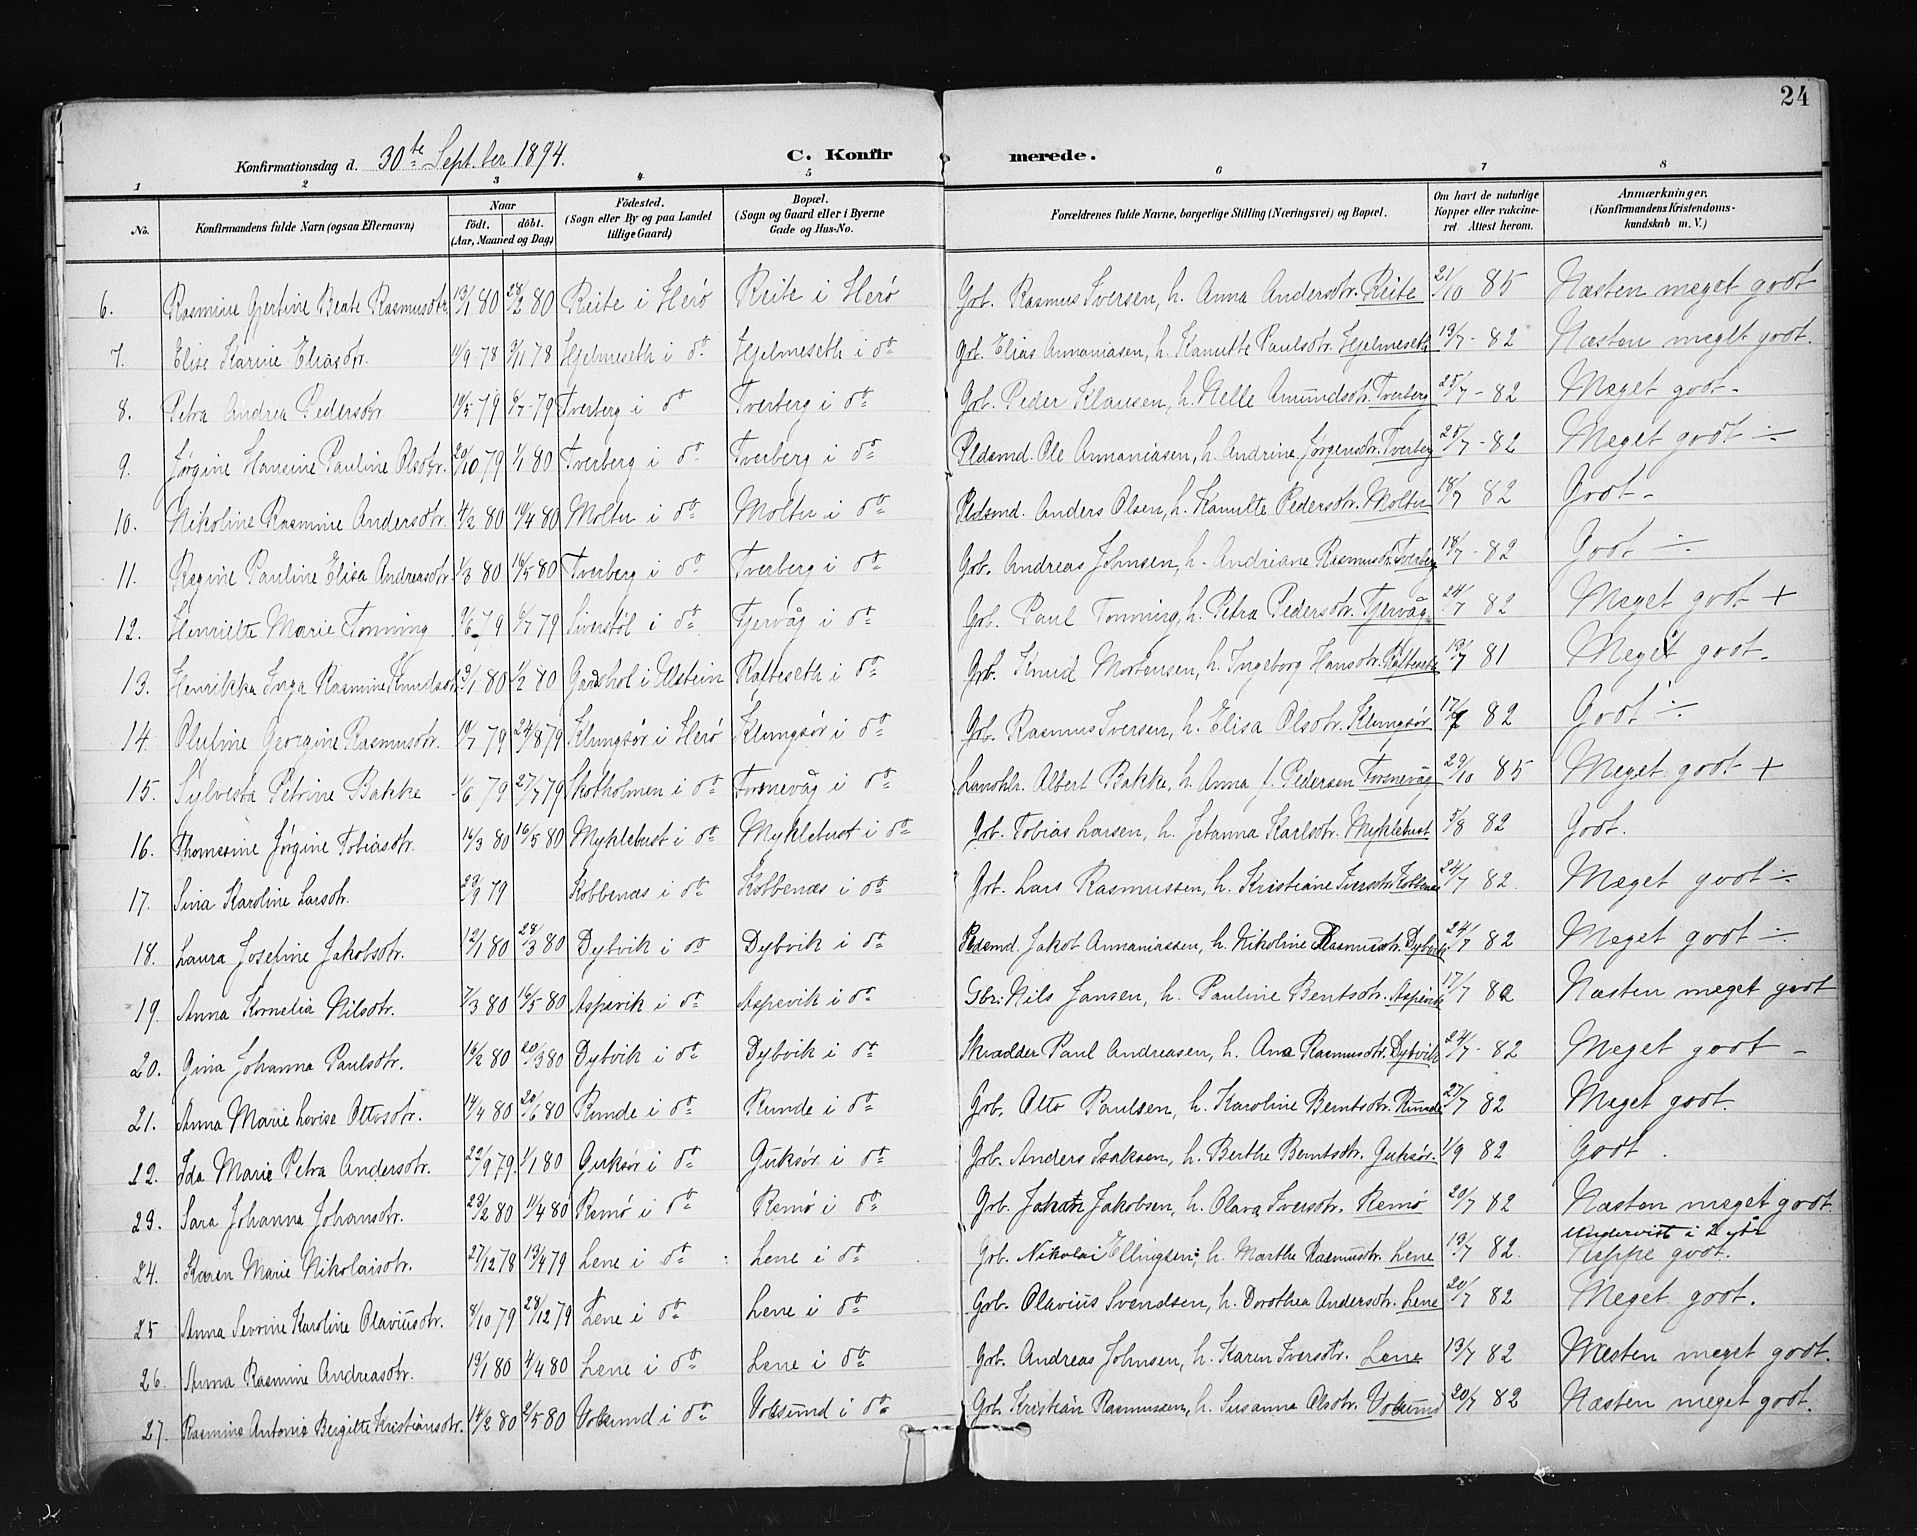 24
Konfirmationsdag d. 30te Septber 1894. C. Konfirmerede.
1 2 3 4 5 6 7 8
No. Konfirmandens fulde Navn (ogsaa Efternavn) Naar født. døbt. (Aar, Maaned og Dag) Fødested. (Sogn eller By og paa Landet tillige Gaard) Bopæl. (Sogn og Gaard eller i Byerne Gade og Hus-No. Forældrenes fulde Navne, borgerlige Stilling (Næringsvei) og Bopæl. Om havt de naturlige Kopper eller vakcineret Attest herom. Anmærkninger. (Konfirmandens Kristendomskundskab m. V.)
6. Rasmine Gjertine Beate Rasmusdtr. 13/1 80 28/2 80 Reite i Herø Reite i Herø Grb. Rasmus Iversen, h. Anna Andersdtr. Reite 21/10 85 Næsten meget godt
7. Elise Karine Eliasdtr. 11/9 78 3/11 78 Hjelmeseth i dº Hjelmeseth i dº Grb. Elias Annaniasen, h. Kanutte Paulsdtr. Hjelmeseth 19/7 - 82 Næsten meget godt.
8. Petra Andrea Pedersdtr. 19/5 79 6/7 - 79 Tverberg i dº Tverberg i dº Grb. Peder Klausen, h. Nelle Amundsdtr. Tverberg 25/7 - 82 Meget godt -
9. Jørgine Hansine Pauline Olsdtr. 20/10 79 1/1 80 Tverberg i dº Tverberg i dº Pldsmd. Ole Annaniasen, h. Andrine Jørgensdtr. Tverberg 25/7 - 82 Meget godt ÷
10. Nikoline Rasmine Andersdtr. 4/2 80 19/4 80 Moltu i dº Moltu i dº Pldsmd. Anders Olsen, h. Kanutte Pedersdtr. Moltu 18/7 82 Godt -
11. Regine Pauline Elisa Andreasdtr. 1/3 80 16/5 80 Tverberg i dº Tverberg i dº Grb. Andreas Johnsen, h. Andriane Rasmusdtr. Tverberg 18/7 - 82 Godt ÷
12. Henriette Marie Tonning 9/6 79 6/7 79 Siverstøl i dº Tjervåg i dº Grb. Paul Tonning, h. Petra Pedersdtr. Tjervåg 24/7 82 Meget godt +
13. Henrikka Inga Rasmine Knudsdtr. 3/1 80 1/2 80 Garshol i Ulstein Ratteseth i dº Grb. Knud Mortensen, h. Ingeborg Hansdtr. Ratteseth 13/7 81 Meget godt.
14. Oluline Georgine Rasmusdtr. 10/7 79 24/8 79 Klungsør i Herø Klungsør i dº Grb. Rasmus Iversen, h. Elisa Olsdtr. Klungsør 82 Godt ÷
15. Sylvesta Petrine Bakke 1/6 79 27/7 79 Skotholmen i dº Fosnevåg i dº Landhlr. Albert Bakke, h. Anna f. Pedersen Fosnevåg 29/10 85 Meget godt +
16. Thomasine Jørgine Tobiasdtr. 16/3 80 16/5 80 Myklebust i dº Myklebust i dº Grb. Tobias Larsen, h. Jetanna Karlsdtr. Myklebust 5/8 82 Godt.
17. Sina Karoline Larsdtr. 29/9 79 Kobbenæs i dº Kobbenæs i dº Grb. Lars Rasmussen, h. Kristiane Iversdtr. Kobbenæs 24/7 82. Meget godt ÷
18. Laura Josefine Jakobsdtr. 12/1 80 28/3 80 Dybvik i dº Dybvik i dº Pldsmd. Jakob Annaniassen, h. Nikoline Rasmusdtr. Dybvik 24/7 82 Meget godt ÷
19. Anna Kornelia Nilsdtr. 7/3 80 16/5 80 Aspevik i dº Aspevik i dº Gbr. Nils Jansen, h. Pauline Bentsdtr. Aspevik 17/7 82 Næsten meget godt
20. Gina Johanna Paulsdtr. 16/2 80 20/3 80 Dybvik i dº Dybvik i dº Skrædder Paul Andreasen, h. Ane Rasmusdtr. Dybvik 24/7 - 82 Meget godt -
21. Anna Marie Lovise Ottosdtr. 14/4 80 20/6 80 Runde i dº Runde i dº Grb. Otto Paulsen, h. Karoline Berntsdtr. Runde 27/7 82 Meget godt.
22. Ida Marie Petra Andersdtr. 22/9 79. 1/1 80 Guksør i dº Guksør i dº Grb. Anders Isaksen, h. Berthe Berntsdtr. Guksør. 1/9 82 Godt.
23. Sara Johanna Johansdtr. 23/2 80 11/4 80 Remø i dº Remø i dº Grb. Jakobsen, h. Olava Iversdtr. Remø 20/7 82 Næsten meget godt.
24. Karen Marie Nikolaisdtr. 27/12 78 13/4 79 Lene i dº Lene i dº Grb. Nikolai Ellingsen, h. Marthe Rasmusdtr. Lene 13/7 82. Undervist i Neppe godt.
25 Anna Sevrine Karoline Olaviusdtr. 8/10 79 28/12 79 Lene i dº Lene i dº Grb. Olavius Svendsen, h. Dorothea Andersdtr. Lene 20/7 82 Meget godt.
26. Anna Rasmine Andreasdtr. 19/1 80 4/4 80 Lene i dº Lene i dº Grb. Andreas Johnsen, h. Karen Iversdtr. Lene 13/7 82 Næsten meget godt.
27. Rasmine Antonie Bergitte Kristiansdtr. 14/2 80 2/5 80 Voksund i dº Voksund i dº Grb. Kristian Rasmussen, h. Susanna Olsdtr. Voksund 20/7 82 Næsten meget godt.